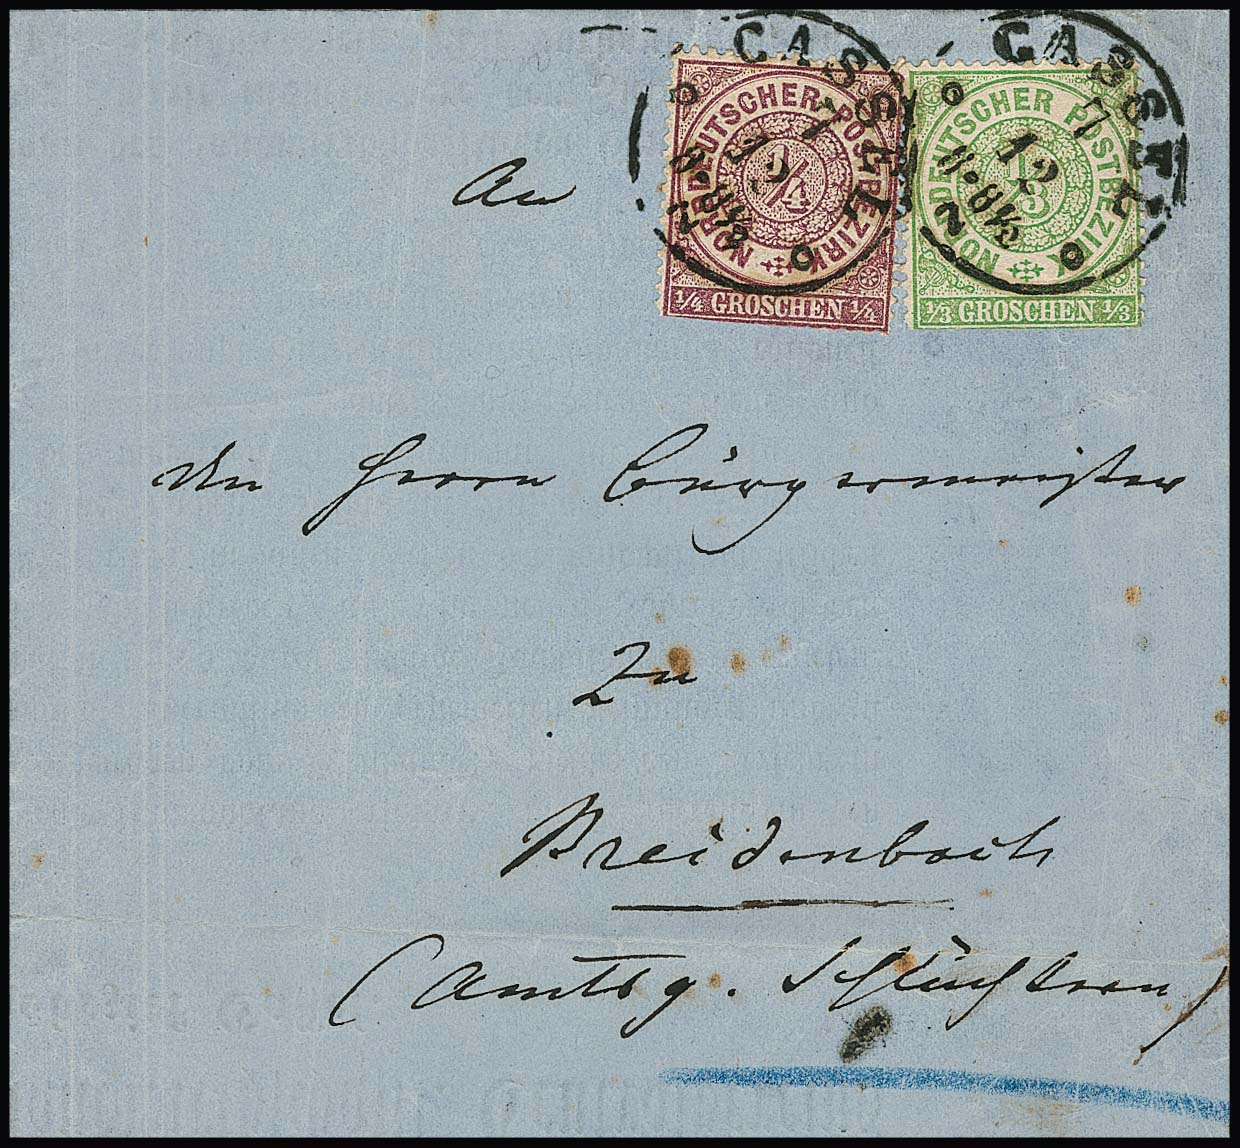 CASSEL
7 12
8-8½
N 2
CASSEL
7 12
8-8½
N 2
NORDDEUTSCHER POSTBEZIRK
1/4
1/4 GROSCHEN 1/4
NORDDEUTSCHER POSTBEZIRK
1/3
1/3 GROSCHEN 1/3
An
den Herrn Bürgermeister
Zu
Breidenbach
(Amtsg. Schlüchtern)